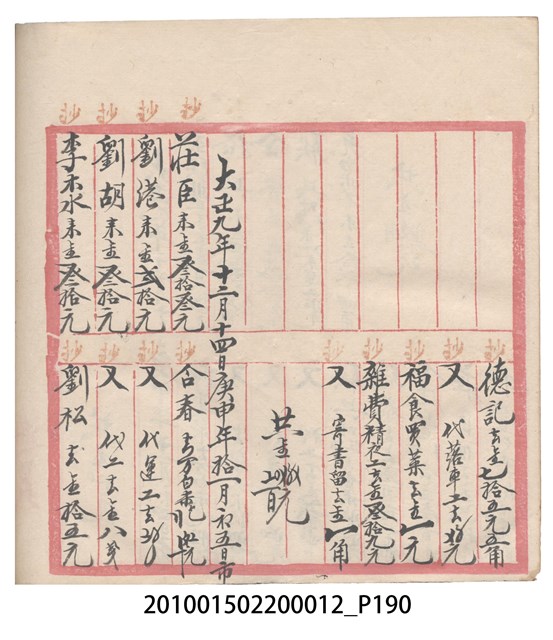 抄 抄 抄 抄
大正九年十二月十四日庚申年拾一月初五日市
莊臣 来金叁拾叁元
劉港 来金弍拾元
劉胡 来金叁拾元
李木水 来金叁拾元
抄 抄 抄 抄 抄 抄 抄 抄 抄
德記 去金七拾五元五角
又 代落車工去
福食買菜去金一元
雜費 去金叁拾九元
又 寄書留去金一角
共金
合春
又 代運工去
又 代工去金八
劉松 去金拾五元
201001502200012_P190